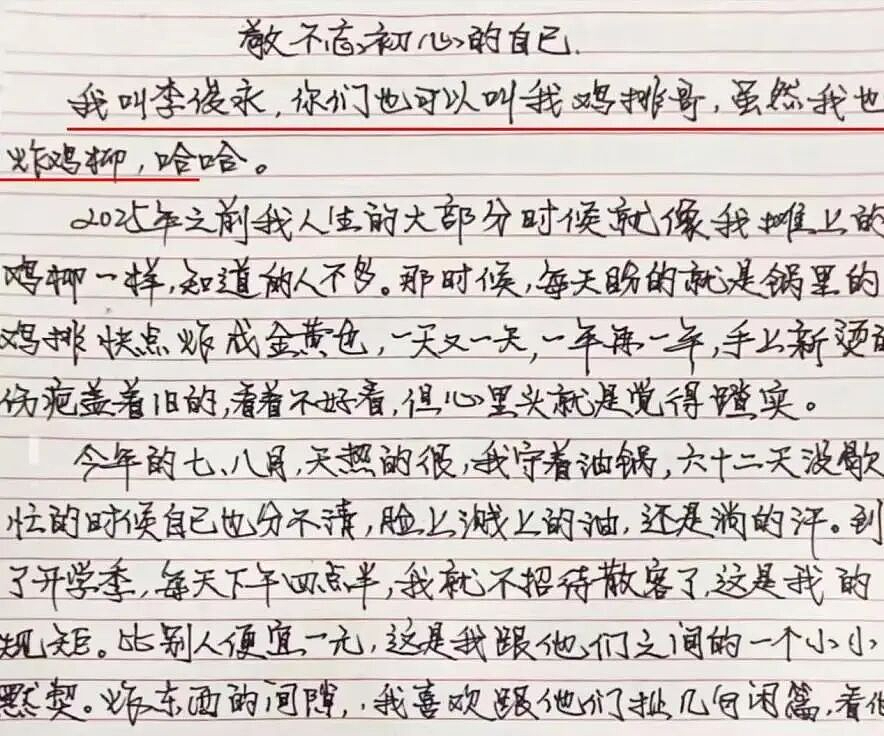 敬不忘初心的自己.
我叫李俊永,你们也可以叫我鸡排哥,虽然我也
炸鸡柳,哈哈。
2025年之前我人生的大部分时候就像我摊上的
鸡柳一样,知道的人不多。那时候,每天盼的就是锅里的
鸡排快点炸成金黄色,一天又一天,一年再一年,手上新烫的
伤疤盖着旧的,看着不好看,但心里头就是觉得蹬实。
今年的七、八月,天热的很,我守着油锅,六十二天没歇
忙的时候自己也分不清,脸上溅上的油,还是淌的汗。到
了开学季,每天下午四点半,我就不招待散客了,这是我的
规矩。比别人便宜一元,这是我跟他们之间的一个小小
默契。炸东西的间隙,我喜欢跟他们扯几句闲篇,看他